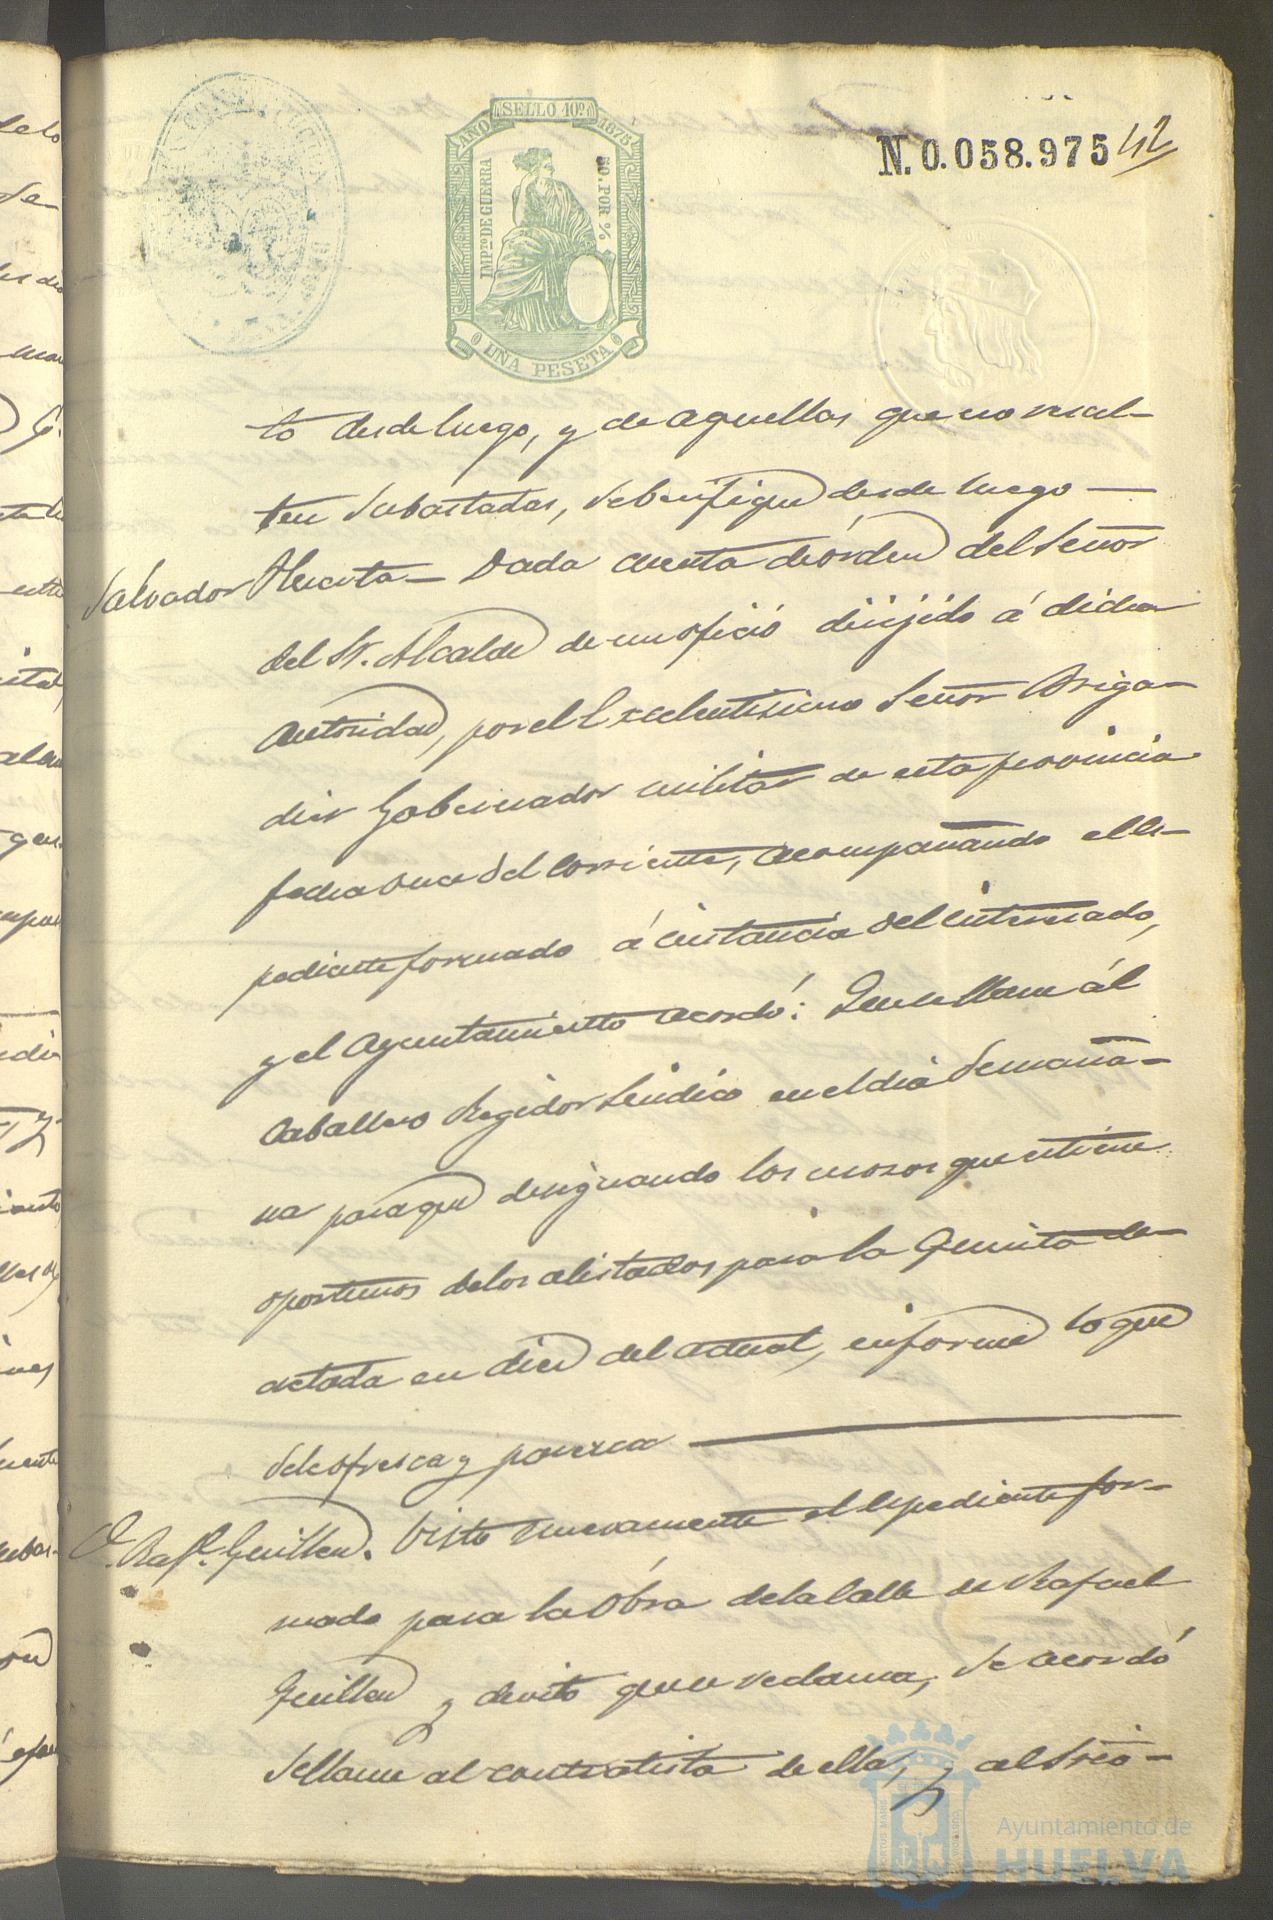 SELLO 10º
AÑO 1875
IMPTO DE GUERRA
50 POR %
UNA PESETA
N. 0.058.975
42
to desde luego, y de aquellas que no resul-
ten subastadas, se berifique desde luego —
Salvador Huerta — Dada cuenta de órden del Señor
del Sr. Alcalde de un oficio dirijido á dicha
autoridad, por el Excelentisimo Señor Briga-
dier Gobernador militar de esta provincia
fecha once del corriente, acompañando el es-
pediente formado á instancia del interesado,
y el Ayuntamiento acordó: Que se llame ál
Caballero Regidor Sindico en el dia de maña-
na para que designando los mozos que estime
oportunos de los alistados para la Quinta de-
cretada en diez del actual, informe lo que
se le ofresca y paresca —
D. Rafl. Guillen. Visto nuevamente el espediente for-
mado para la Obra de la Calle de Rafael
Guillen y devito que se reclama, se acordó
se llame al contratista de ella, y al Srio-
Ayuntamiento de
HUELVA